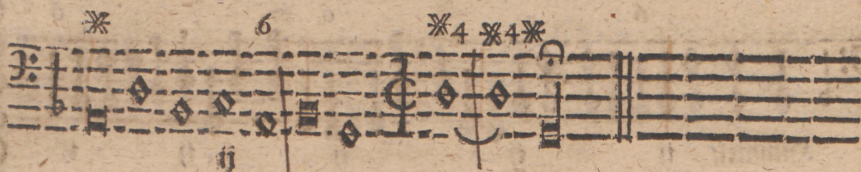 6 4 4
ij